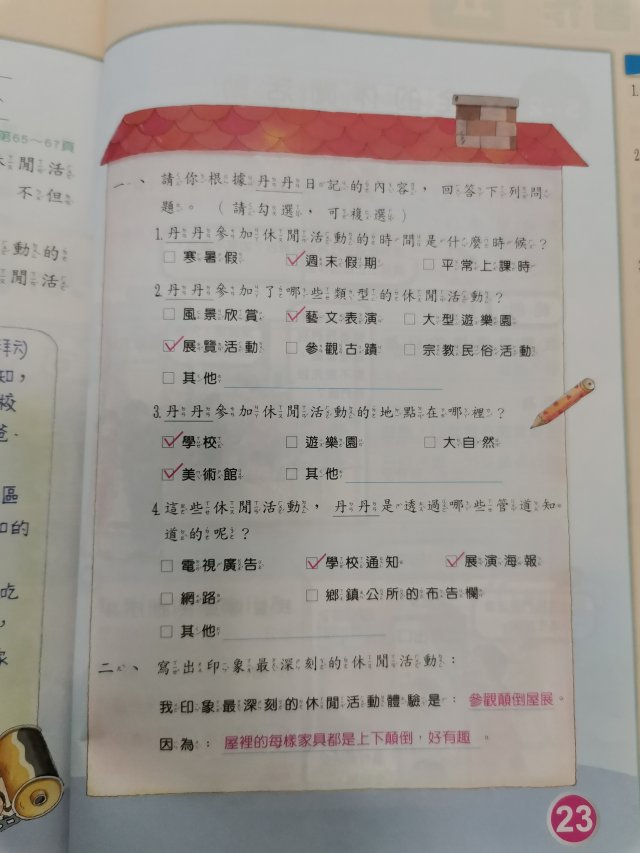 第65～67頁
休閒活
不但
動的
閒活
拜六)
知，
校
爸
區
和的
吃
，
家
一、請你根據丹丹日記的內容，回答下列問
題。（請勾選，可複選）
1.丹丹參加休閒活動的時間是什麼時候？
□寒暑假 ☑週末假期 □平常上課時
2.丹丹參加了哪些類型的休閒活動？
□風景欣賞 ☑藝文表演 □大型遊樂園
☑展覽活動 □參觀古蹟 □宗教民俗活動
□其他
3.丹丹參加休閒活動的地點在哪裡？
☑學校 □遊樂園 □大自然
☑美術館 □其他
4.這些休閒活動，丹丹是透過哪些管道知
道的呢？
□電視廣告 ☑學校通知 ☑展演海報
□網路 □鄉鎮公所的布告欄
□其他
二、寫出印象最深刻的休閒活動：
我印象最深刻的休閒活動體驗是：參觀顛倒屋展。
因為：屋裡的每樣家具都是上下顛倒，好有趣。
23
1.
2